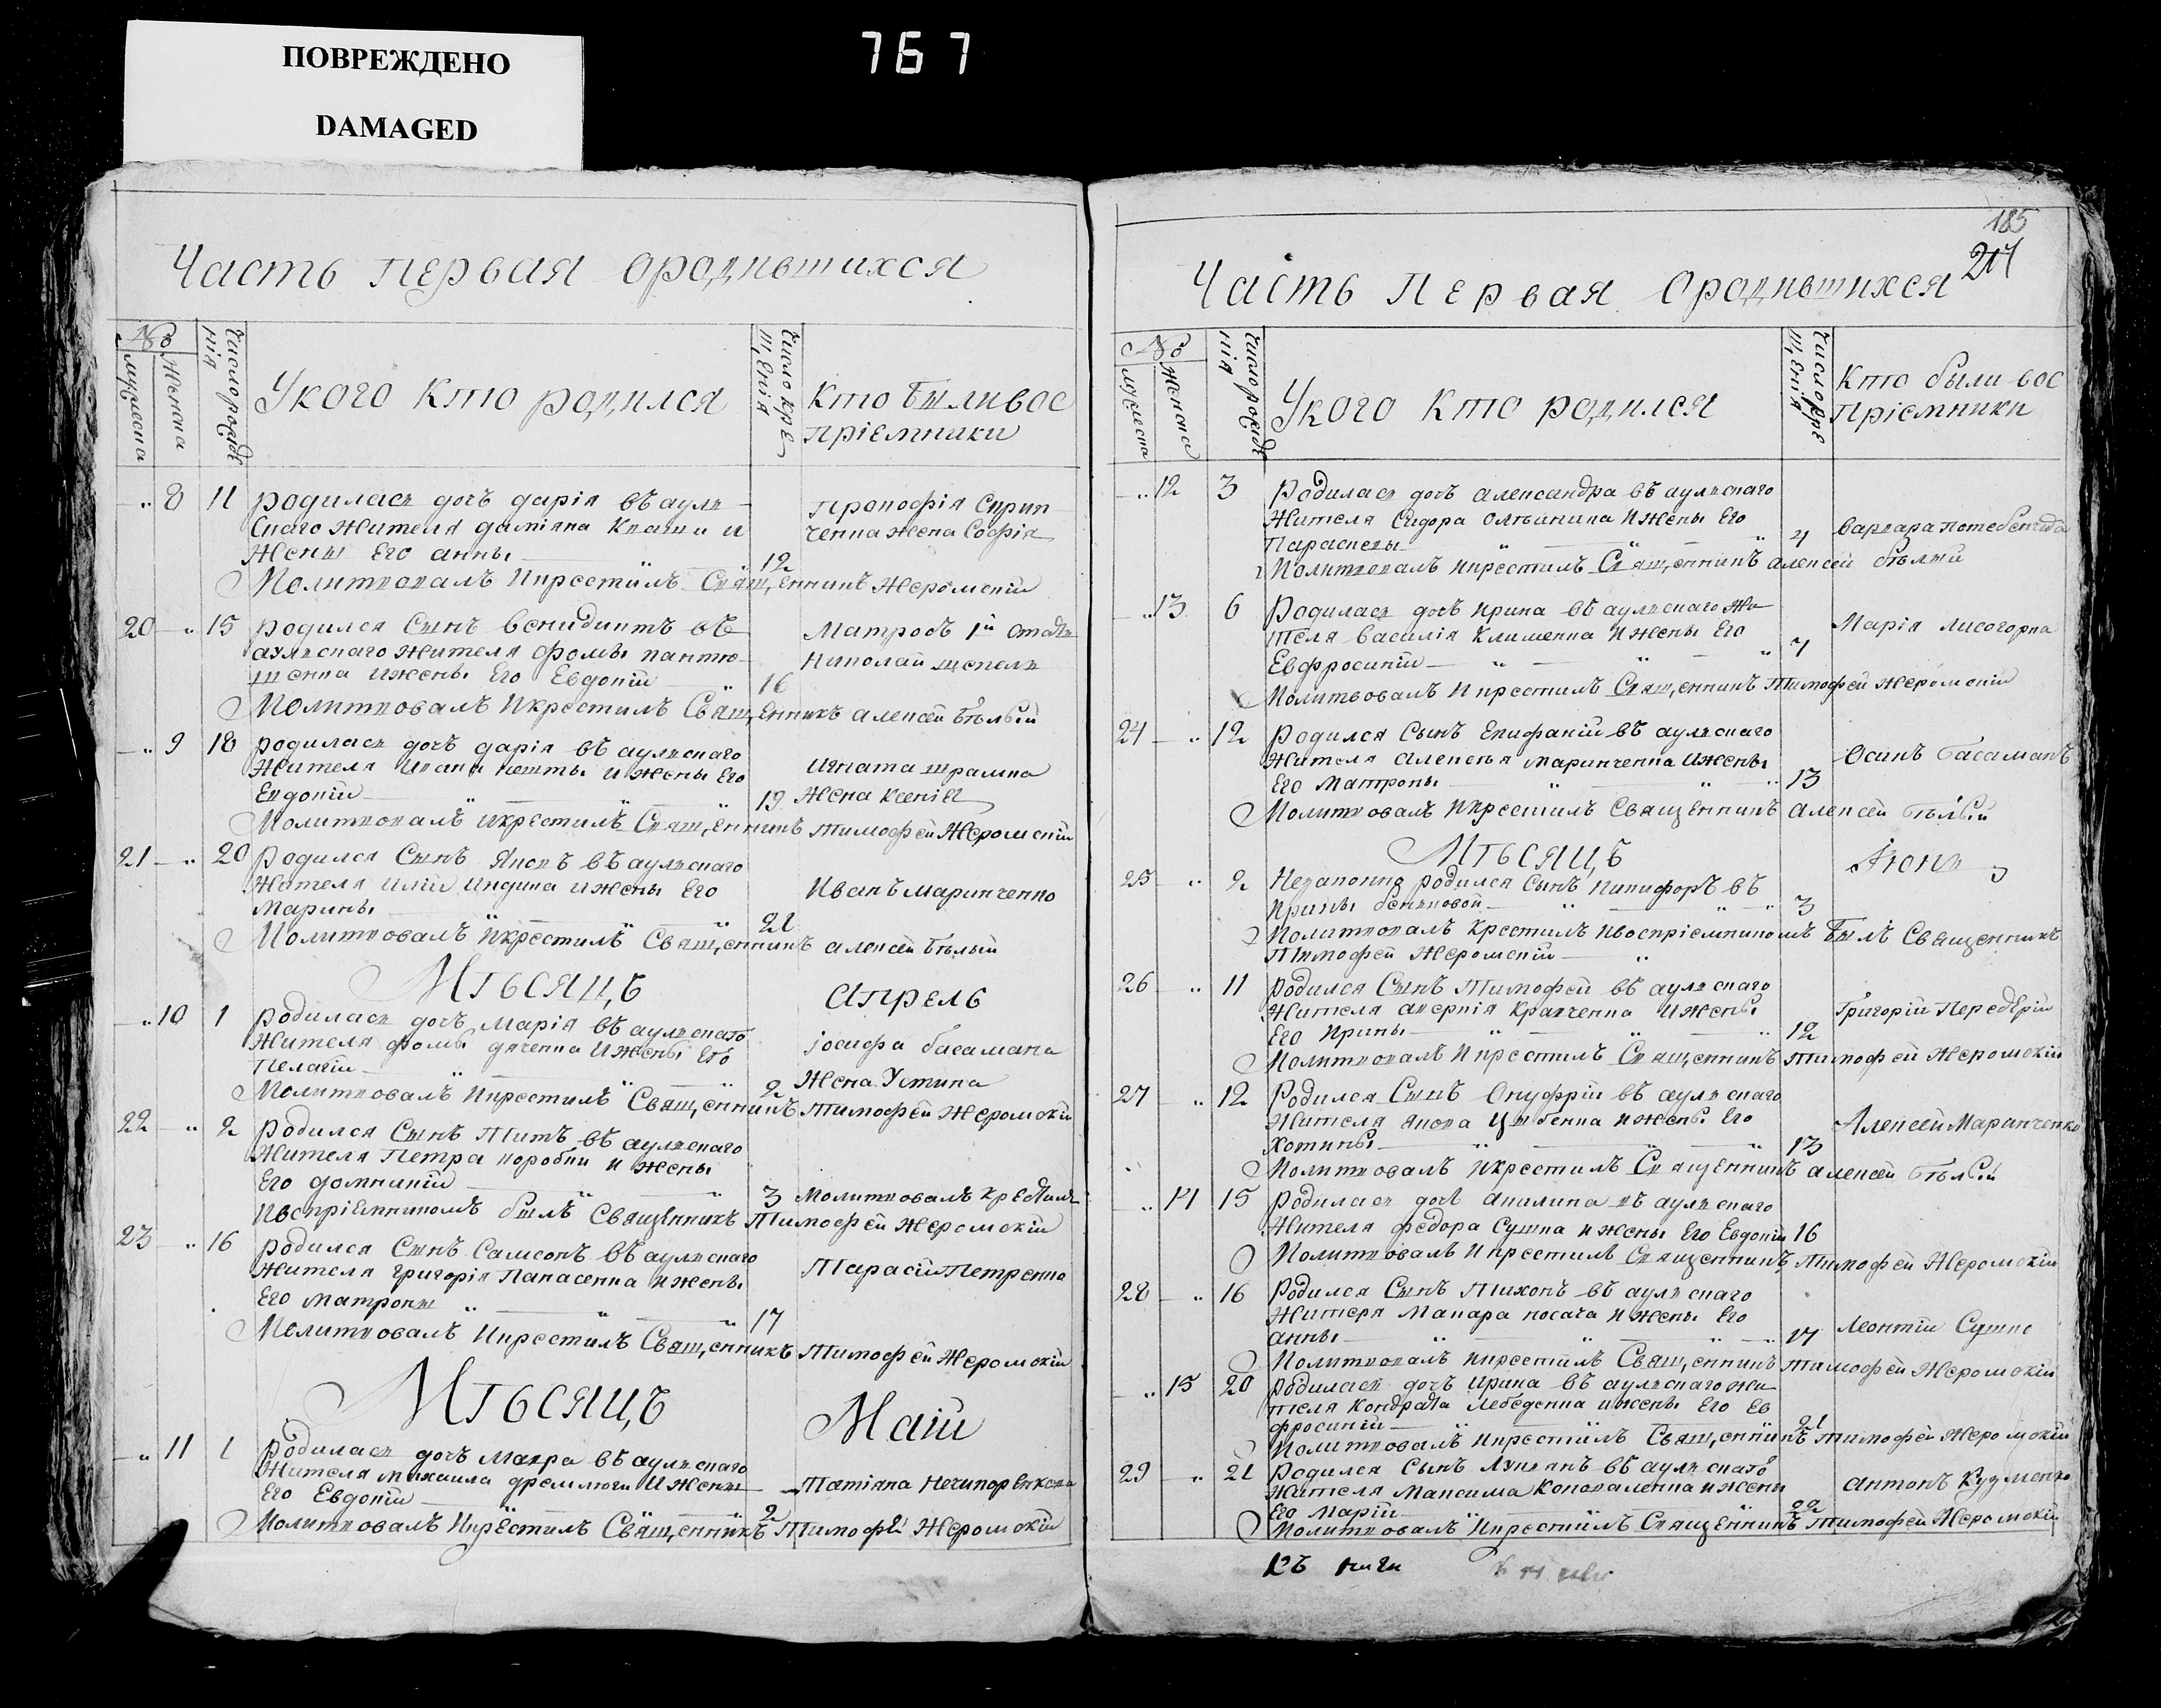 ПОВРЕЖДЕНО
DAMAGED
767
Часть первая ородившихся
№
мужеска
Женска
число рожде
нія
Укого Кто родился
число кре
щенія
Кто были вос
пріемники
8 11 родилась дочь дарія въ аулѣ
скаго Жителя
Жены Его анны 12
Прокофія
ченка Жена Софія
Молитвовалъ икрестилъ Священникъ Жеромскій
20 15 родился Сынъ въ
аулѣскаго жителя фомы пантю
шенка ижены Его Евдокіи 16
Матрозъ
Николай
Молитвовалъ Икрестилъ Священникъ алексей бѣлый
9 18 родилась дочь дарія въ аулѣскаго
Жителя Ивана ижены Его
Евдокіи 19
Игната шрамка
Жена Ксенія
Молитвовалъ икрестилъ Священникъ тимофей Жеромскій
21 20 Родился Сынъ Яковъ въ аулѣскаго
Жителя Иліи Индика ижены Его
Марины 21
Иванъ Маринченко
Молитвовалъ Икрестилъ Священникъ алексей бѣлый
Мѣсяцъ Апрель
10 1 родилась дочь марія въ аулѣскаго
Жителя фомы дяченка Ижены Его
Пелагіи 2
іосифа басамана
Жена Устина
Молитвовалъ Икрестилъ Священникъ тимофей Жеромскій
22 2 родился Сынъ Титъ въ аулѣскаго
Жителя Петра коробки и жены
Его домникіи 3 Молитвовалъ крестилъ
Ивоспріемникомъ былъ Священникъ Тимофей Жеромскій
23 16 родился Сынъ Самсонъ въ аулѣскаго
Жителя григорія Панасенка и жены
Его матроны 17
Тарасій Петренко
Молитвовалъ Икрестилъ Священникъ Тимофей Жеромскій
Мѣсяцъ Маій
11 1 родилась дочь мавра въ аулѣскаго
Жителя михаила дремлюги Ижены
Его Евдокіи 2
Татіана Нечипоренкова
Молитвовалъ Икрестилъ Священникъ Тимофей Жеромскій
185
Часть Первая Ородившихся
№
мужеска
Женска
число рожде
нія
Укого Кто родился
число кре
щенія
Кто были вос
Пріемники
12 3 родилась дочь александра въ аулѣскаго
Жителя Сидора И жены Его
Параскевы 4
варвара
Молитвовалъ икрестилъ Священникъ алексей бѣлый
13 6 Родилась дочь ирина въ аулѣскаго жи
теля василія Клименка И жены Его
Евфросиніи 7
Марія лисогорка
Молитвовалъ Икрестилъ Священникъ Тимофей Жеромскій
24 12 родился Сынъ Епифаній въ аулѣскаго
Жителя алексѣя маринченка ижены
Его Матроны 13
Осипъ басаманъ
Молитвовалъ Икрестилъ Священникъ алексей бѣлый
Мѣсяцъ Іюнь
25 2 Незаконно родился Сынъ никифоръ въ
Ирины 3
Молитвовалъ Крестилъ Ивоспріемникомъ былъ Священникъ
Тимофей Жеромскій
26 11 родился Сынъ Тимофей въ аулѣскаго
Жителя аверкія Кравченка Ижены
Его Ирины 12
Григорій Передерій
Молитвовалъ Икрестилъ Священникъ Тимофей Жеромскій
27 12 Родился Сынъ Онуфрій въ аулѣскаго
Жителя якова Цыбенка ижены Его
Хотины 13
Алексей Маринченко
Молитвовалъ Икрестилъ Священникъ алексей бѣлый
14 15 родилась дочь акилина въ аулѣскаго
Жителя федора Сушка ижены Его Евдокіи 16
Молитвовалъ Икрестилъ Священникъ Тимофей Жеромскій
28 16 родился Сынъ Тихонъ въ аулѣскаго
Жителя Макара носача ижены Его
анны 17
леонтій Сушко
Молитвовалъ икрестилъ Священникъ тимофей Жеромскій
15 20 родилась дочь ирина въ аулѣскаго жи
теля Кондрата Лебеденка ижены Его Ев
фросиніи 21
Молитвовалъ Икрестилъ Священникъ тимофей Жеромскій
29 21 родился Сынъ Лукіянъ въ аулѣскаго
Жителя Максима Коноваленка ижены
Его Маріи 22
антонъ Кузменко
Молитвовалъ Икрестилъ Священникъ тимофей Жеромскій
Къ